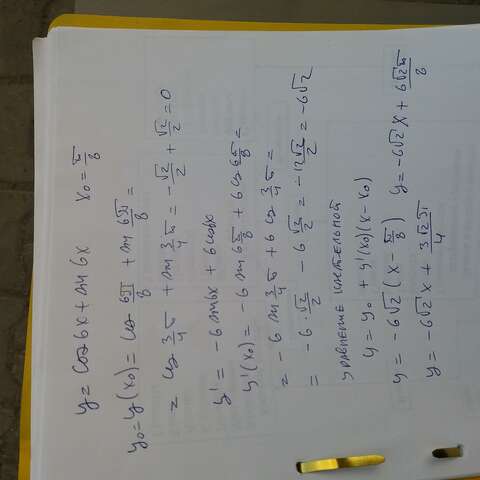 y = cos 6x + sin 6x      x₀ = π/8
y₀ = y(x₀) = cos 6π/8 + sin 6π/8 =
= cos 3/4 π + sin 3/4 π = -√2/2 + √2/2 = 0
y' = -6 sin 6x + 6 cos 6x
y'(x₀) = -6 sin 6π/8 + 6 cos 6π/8 =
= -6 sin 3/4 π + 6 cos 3/4 π =
= -6 · √2/2 - 6 √2/2 = -12√2/2 = -6√2
уравнение касательной
y = y₀ + y'(x₀)(x - x₀)
y = -6√2 (x - π/8)      y = -6√2 x + 6√2π/8
y = -6√2 x + 3√2π/4